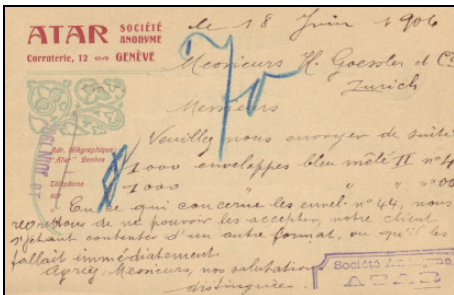 ATAR SOCIÉTÉ ANONYME
Corraterie, 12 GENÈVE
le 18 Juin 1906
Messieurs H. Goessler & Cº
Zurich
Messieurs
Adr. télégraphique
"Atar" Genève
Téléphone
Veuillez nous envoyer de suite
1000 enveloppes bleu mêlé II nº 4
1000 " " " nº 00
En ce qui concerne les envel. nº 44, nous
regrettons de ne pouvoir les accepter, notre client
s'étant contenté d'un autre format, vu qu'il les
fallait immédiatement.
Agréez, Messieurs, nos salutations
distinguées.
Société Anonyme
ATAR